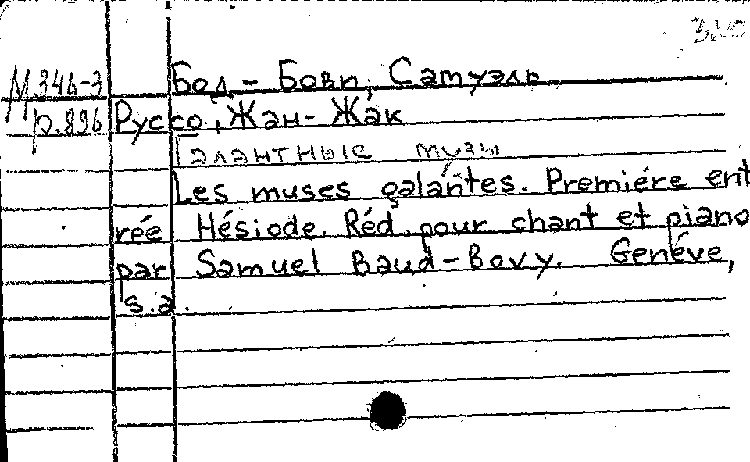 М 346-3 Бод-Бови, Самуэль
р.896 Руссо, Жан-Жак
Галантные музы
Les muses galantes. Premiére ent
rée Hésiode. Réd. pour chant et piano
par Samuel Baud-Bovy. Genéve,
s.a.